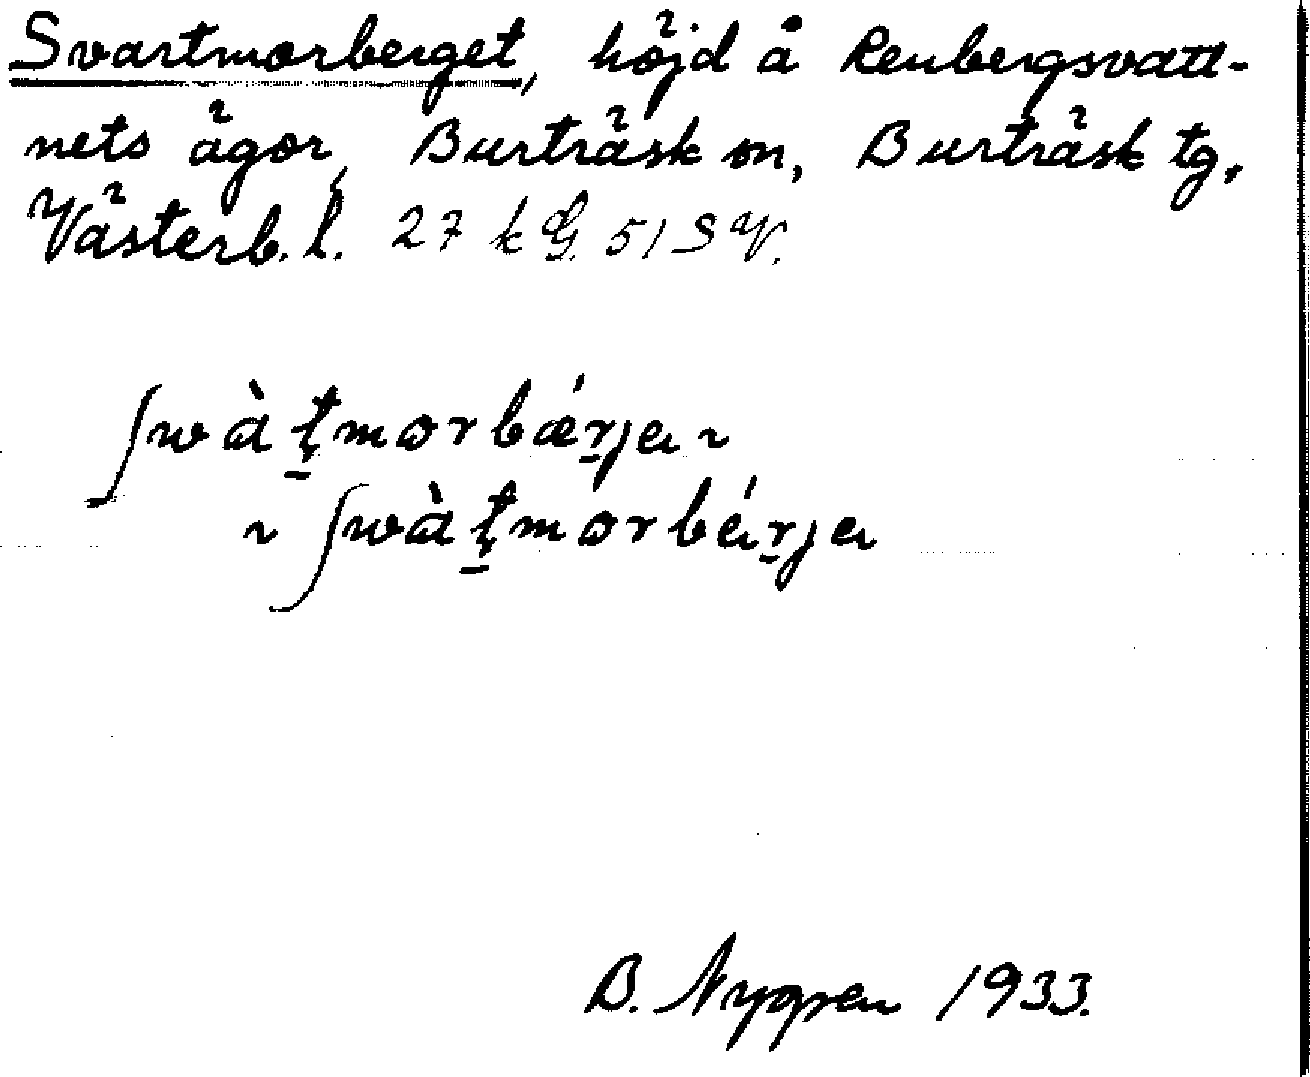 Svartmorberget, höjd å Renbergsvatt-
nets ägor, Burträsk sn, Burträsk tg,
Västerb. l. 27 k G. 51 S V.
ʃwàt̠morbǽr̠ja ~
~ ʃwàt̠morbár̠ja
B. Nygren 1933.